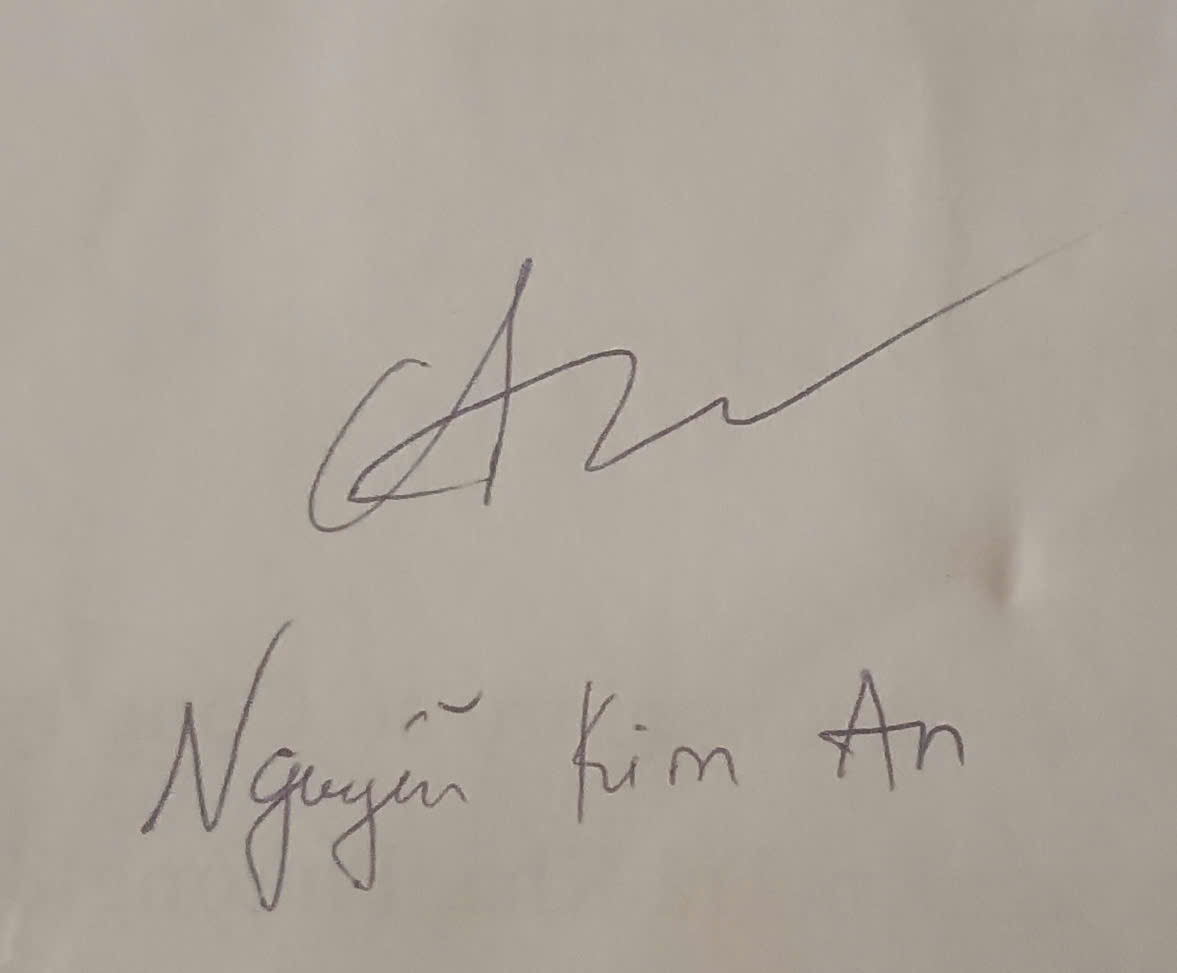 An
Nguyễn Kim An